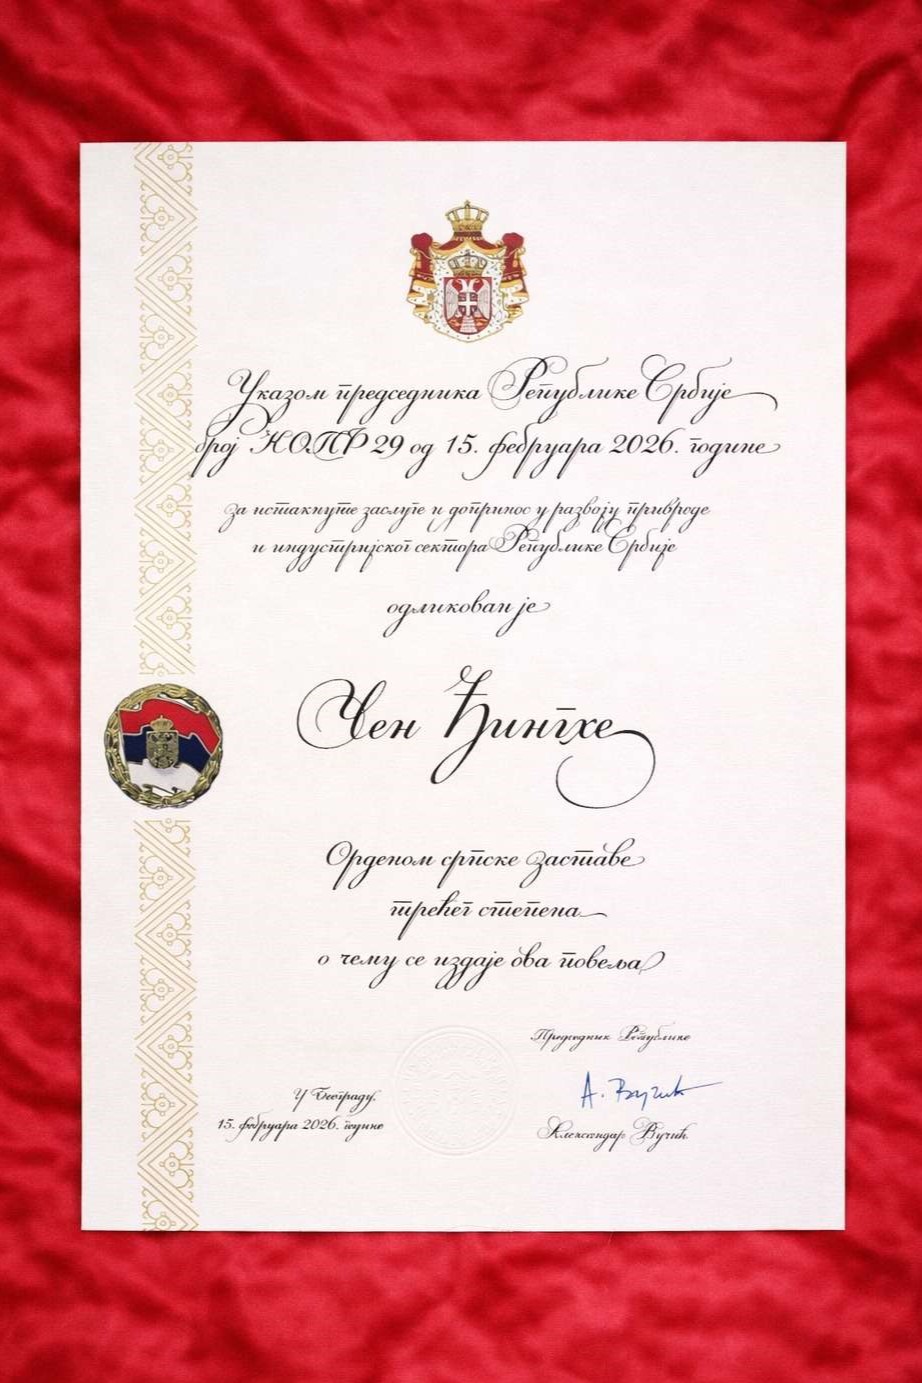 Указом председника Републике Србије
број КОПР 29 од 15. фебруара 2026. године
за истакнуте заслуге и допринос у развоју привреде
и индустријског сектора Републике Србије
одликован је
Чен Ђингхе
Орденом српске заставе
трећег степена
о чему се издаје ова повеља
Председник Републике
У Београду,
15. фебруара 2026. године
А. Вучић
Александар Вучић